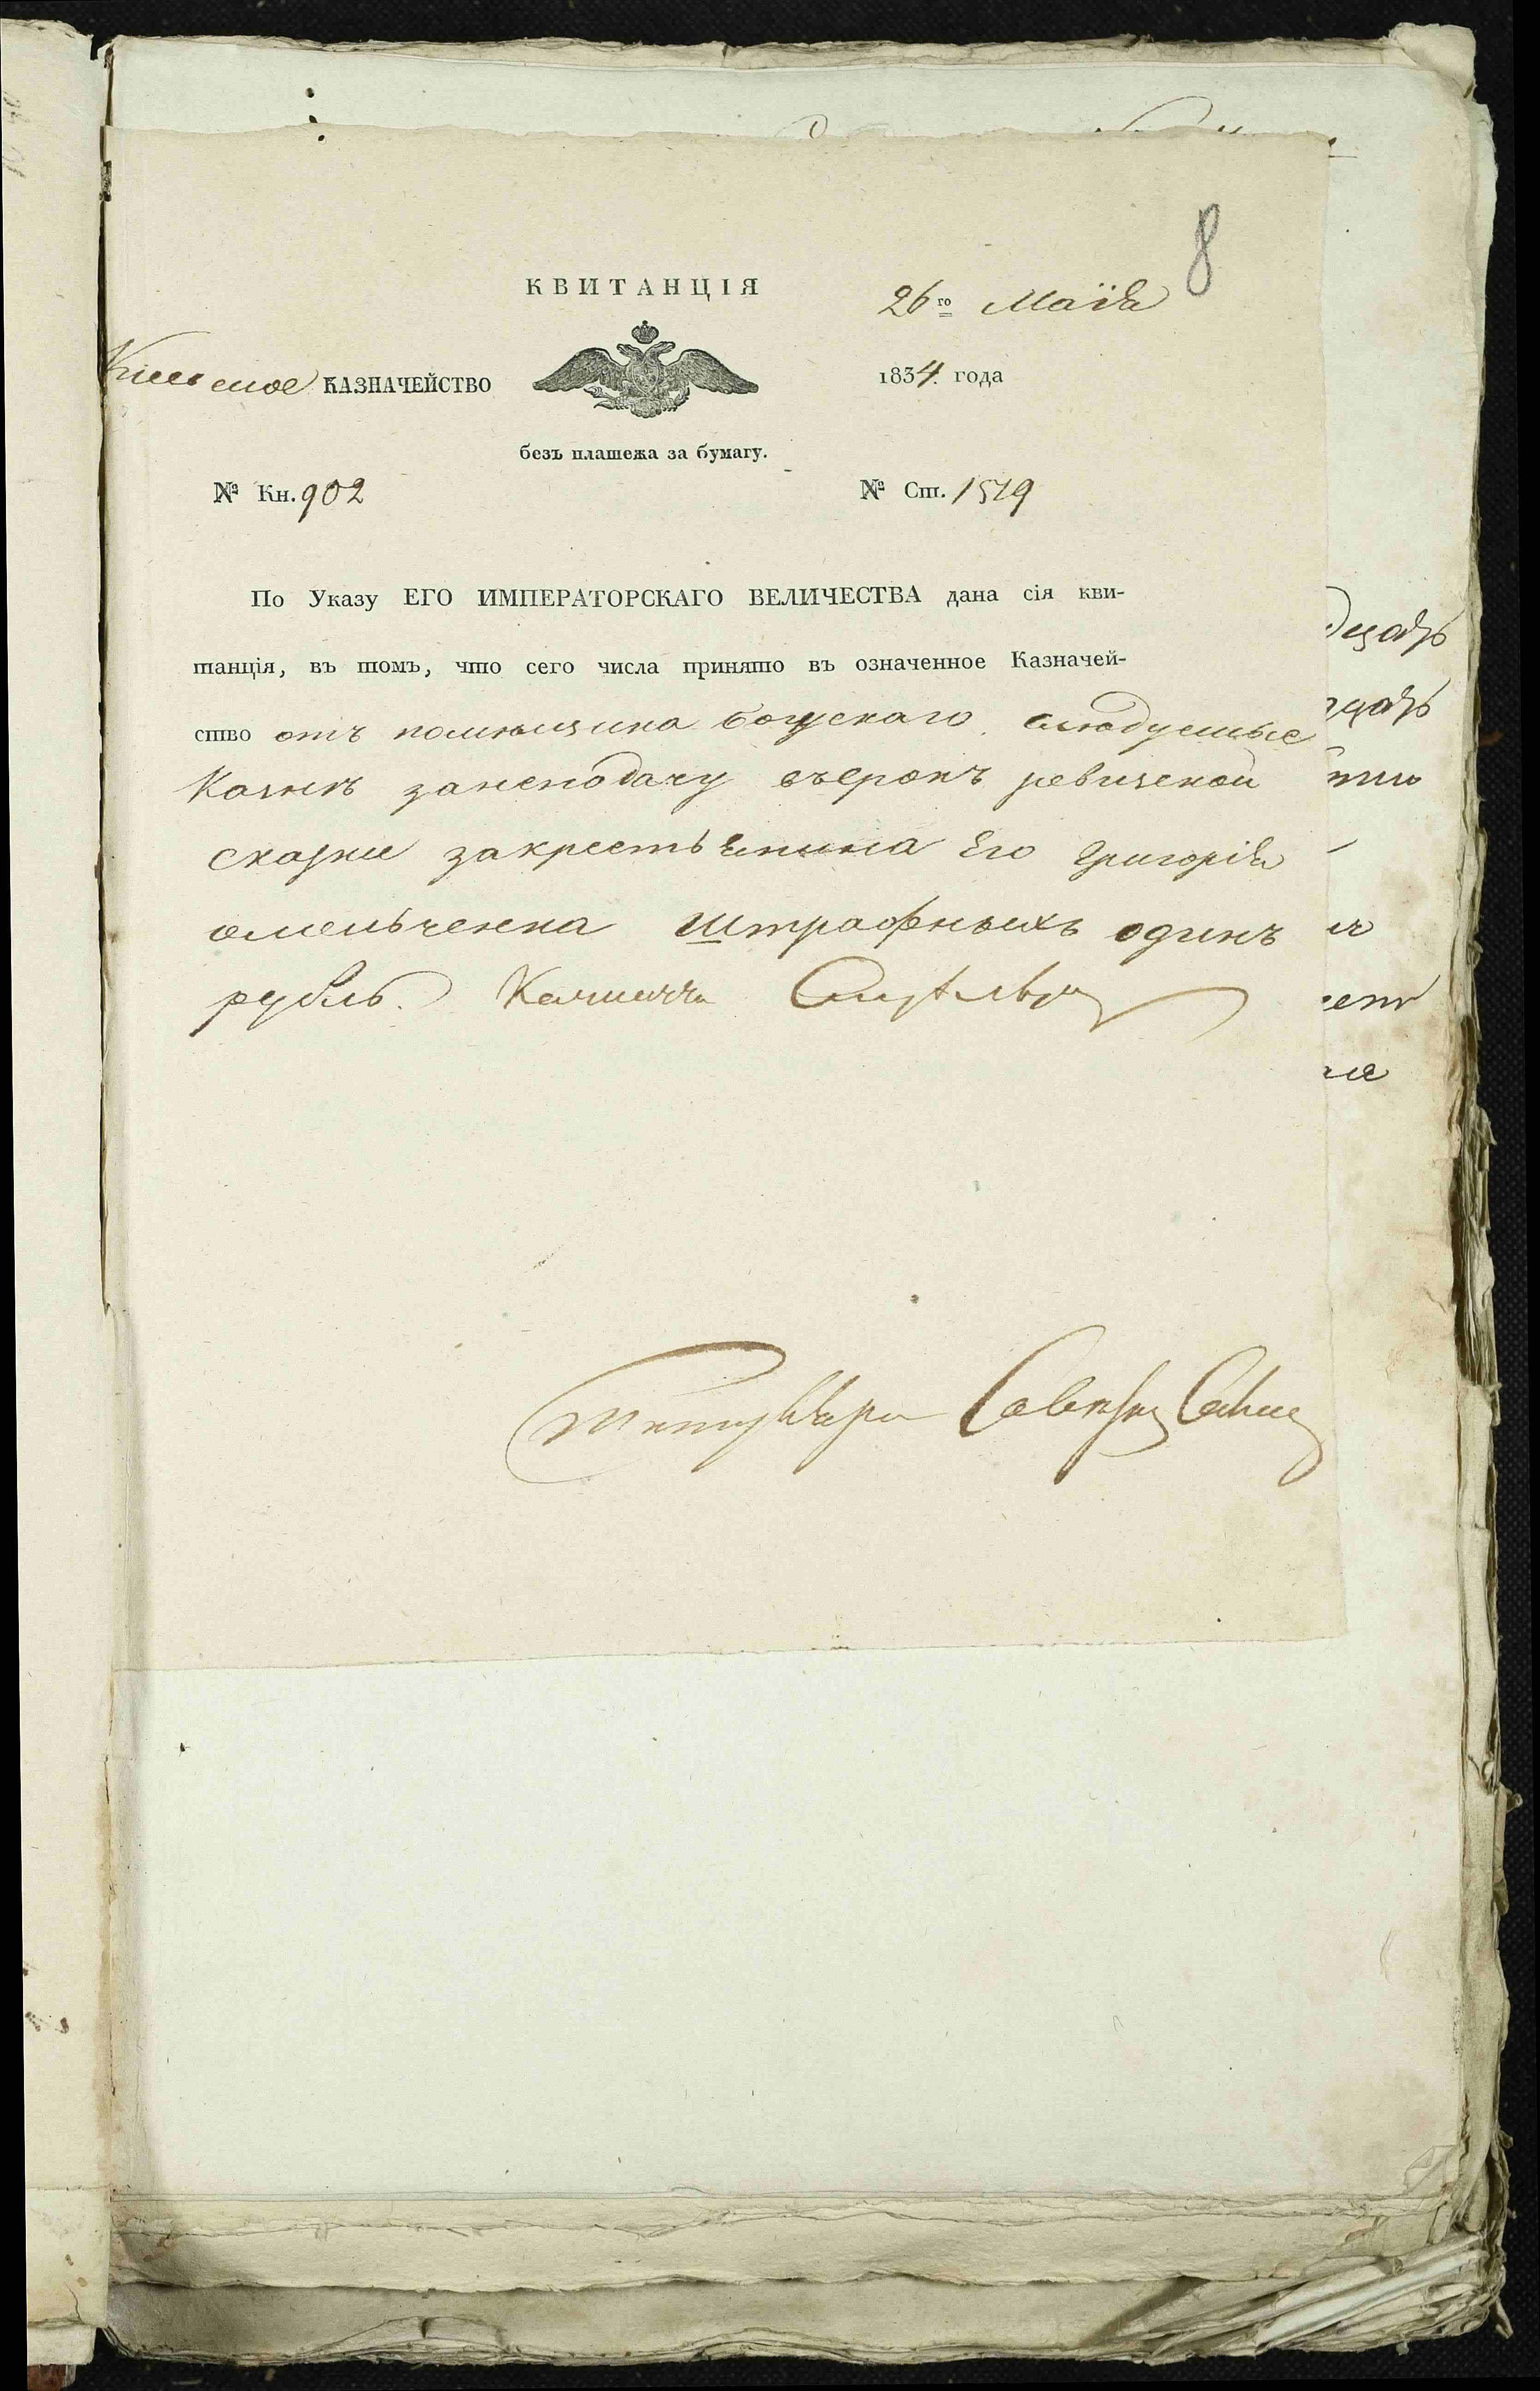 8
КВИТАНЦІЯ
26го Маія
Кіевское КАЗНАЧЕЙСТВО
1834. года
безъ платежа за бумагу.
№ Кн. 902
№ Ст. 1519
По Указу ЕГО ИМПЕРАТОРСКАГО ВЕЛИЧЕСТВА дана сія кви-
танція, въ томъ, что сего числа принято въ означенное Казначей-
ство отъ помѣщика слѣдуемые
Казнѣ занеподачу въсрокъ ревизской
сказки закрестьянина Его Григорія
омельченка штрафныхъ одинъ
рубль. Казначей